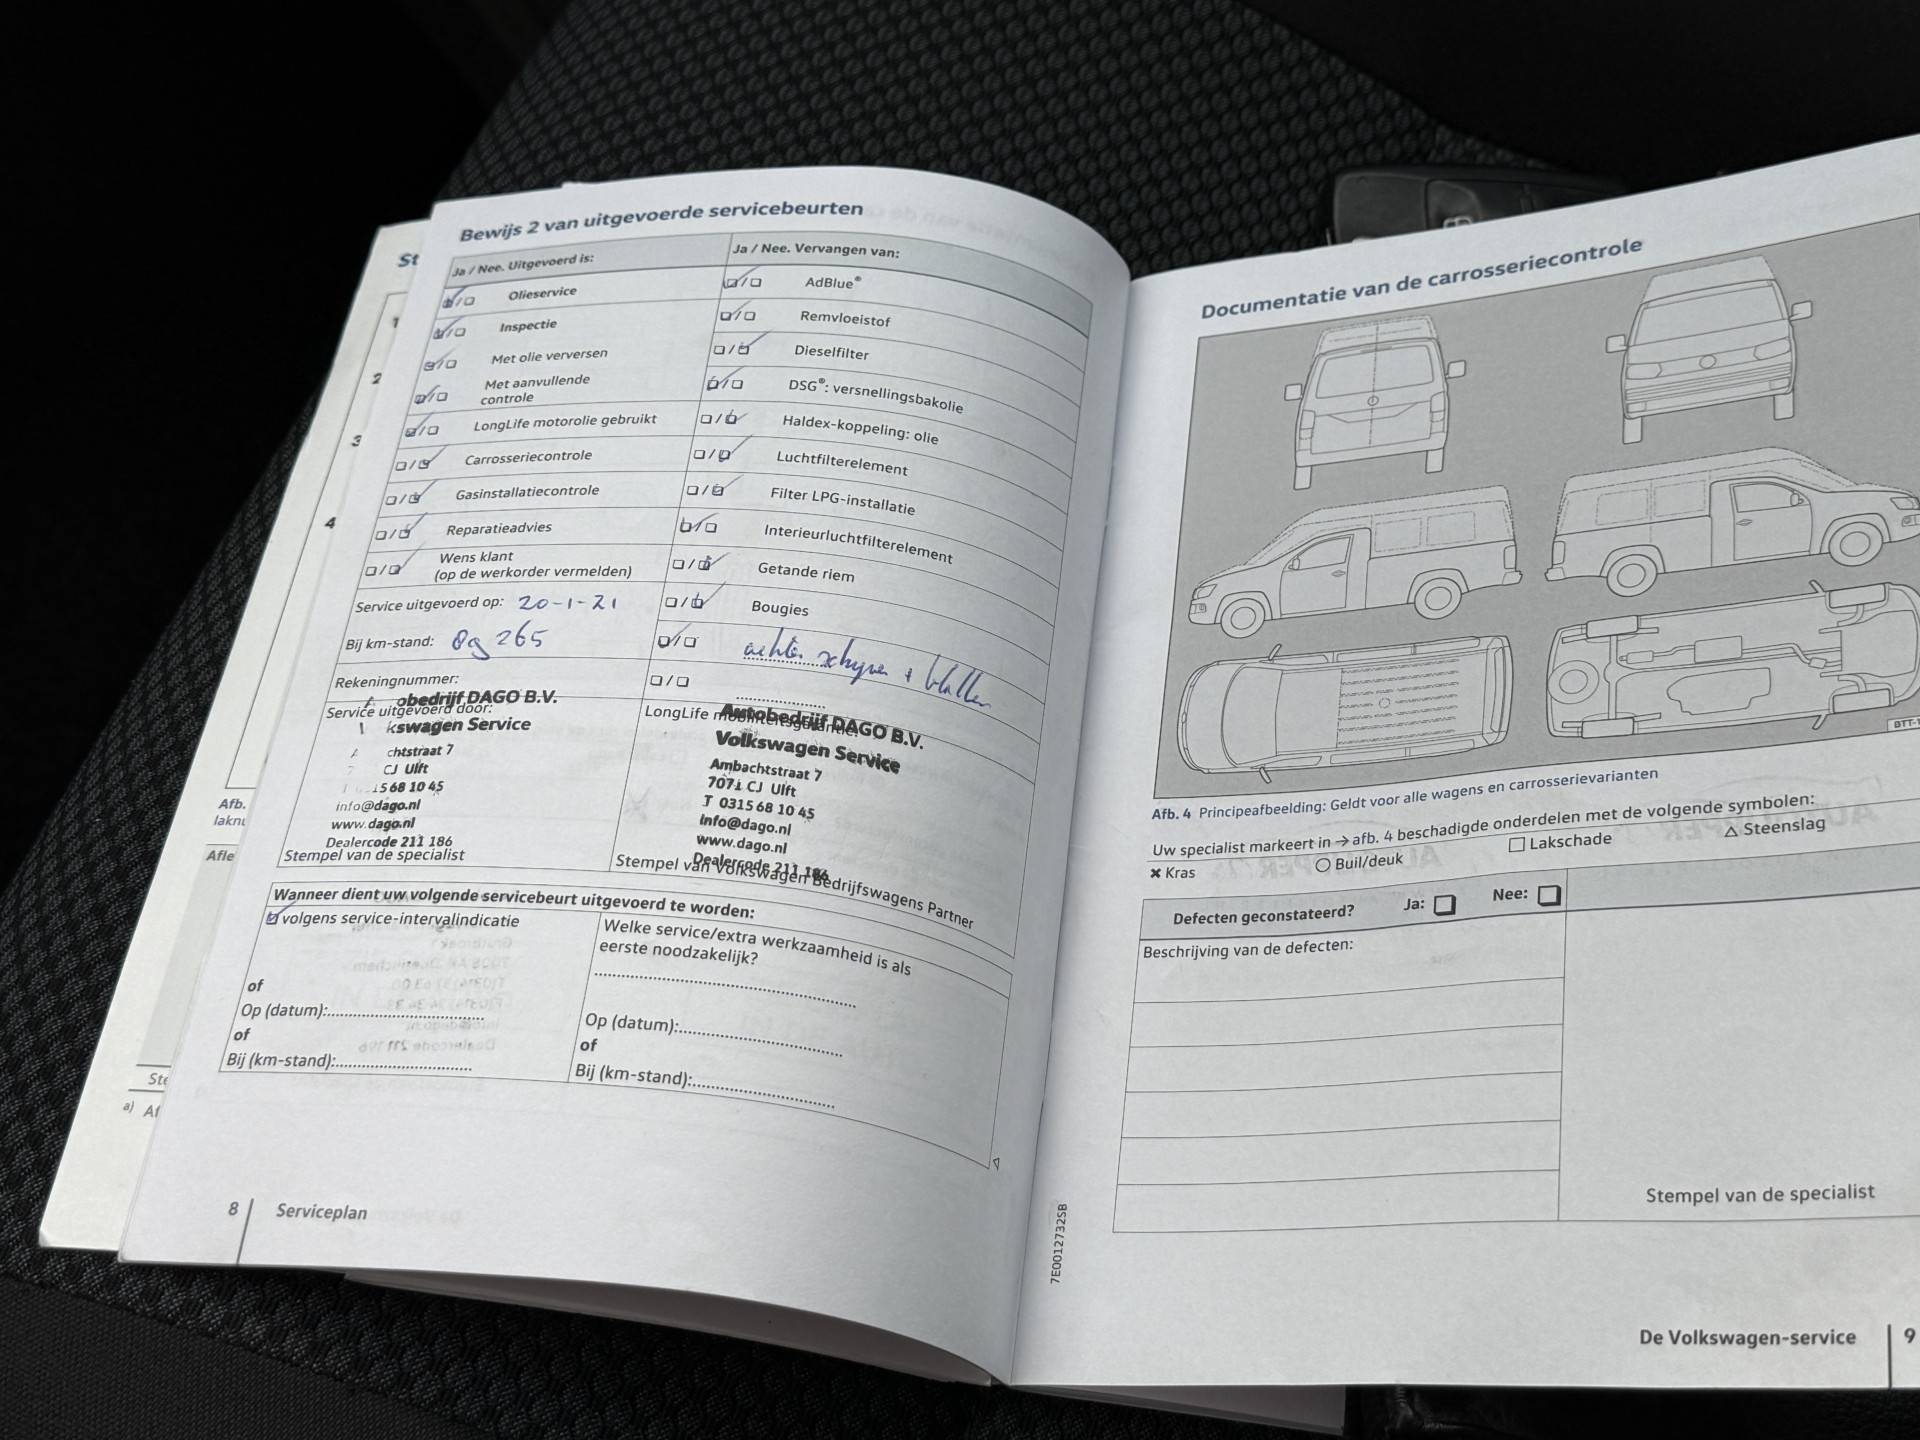 Bewijs 2 van uitgevoerde servicebeurten
Ja / Nee. Uitgevoerd is:
Olieservice
Inspectie
Met olie verversen
Met aanvullende
controle
LongLife motorolie gebruikt
Carrosseriecontrole
Gasinstallatiecontrole
Reparatieadvies
Wens klant
(op de werkorder vermelden)
Service uitgevoerd op: 20-1-21
Bij km-stand: 265
Rekeningnummer:
obedrijf DAGO B.V.
Service uitgevoerd door:
kswagen Service
chtstraat 7
CJ Ulft
15 68 10 45
info@dago.nl
www.dago.nl
Dealercode 211 186
Stempel van de specialist
Ja / Nee. Vervangen van:
AdBlue®
Remvloeistof
Dieselfilter
DSG®: versnellingsbakolie
Haldex-koppeling: olie
Luchtfilterelement
Filter LPG-installatie
Interieurluchtfilterelement
Getande riem
Bougies
LongLife mobiliteitsgarantie:
Autobedrijf DAGO B.V.
Volkswagen Service
Ambachtstraat 7
7071 CJ Ulft
T 0315 68 10 45
info@dago.nl
www.dago.nl
Dealercode 211 186
Stempel van Volkswagen Bedrijfswagens Partner
Wanneer dient uw volgende servicebeurt uitgevoerd te worden:
volgens service-intervalindicatie
of
Op (datum):
of
Bij (km-stand):
Welke service/extra werkzaamheid is als
eerste noodzakelijk?
Op (datum):
of
Bij (km-stand):
8 Serviceplan
St
1
2
3
4
Afb.
Afle
a)
Documentatie van de carrosseriecontrole
Afb. 4 Principeafbeelding: Geldt voor alle wagens en carrosserievarianten
Uw specialist markeert in → afb. 4 beschadigde onderdelen met de volgende symbolen:
× Kras ○ Buil/deuk □ Lakschade △ Steenslag
Defecten geconstateerd? Ja: Nee:
Beschrijving van de defecten:
Stempel van de specialist
7E0012732SB
De Volkswagen-service 9